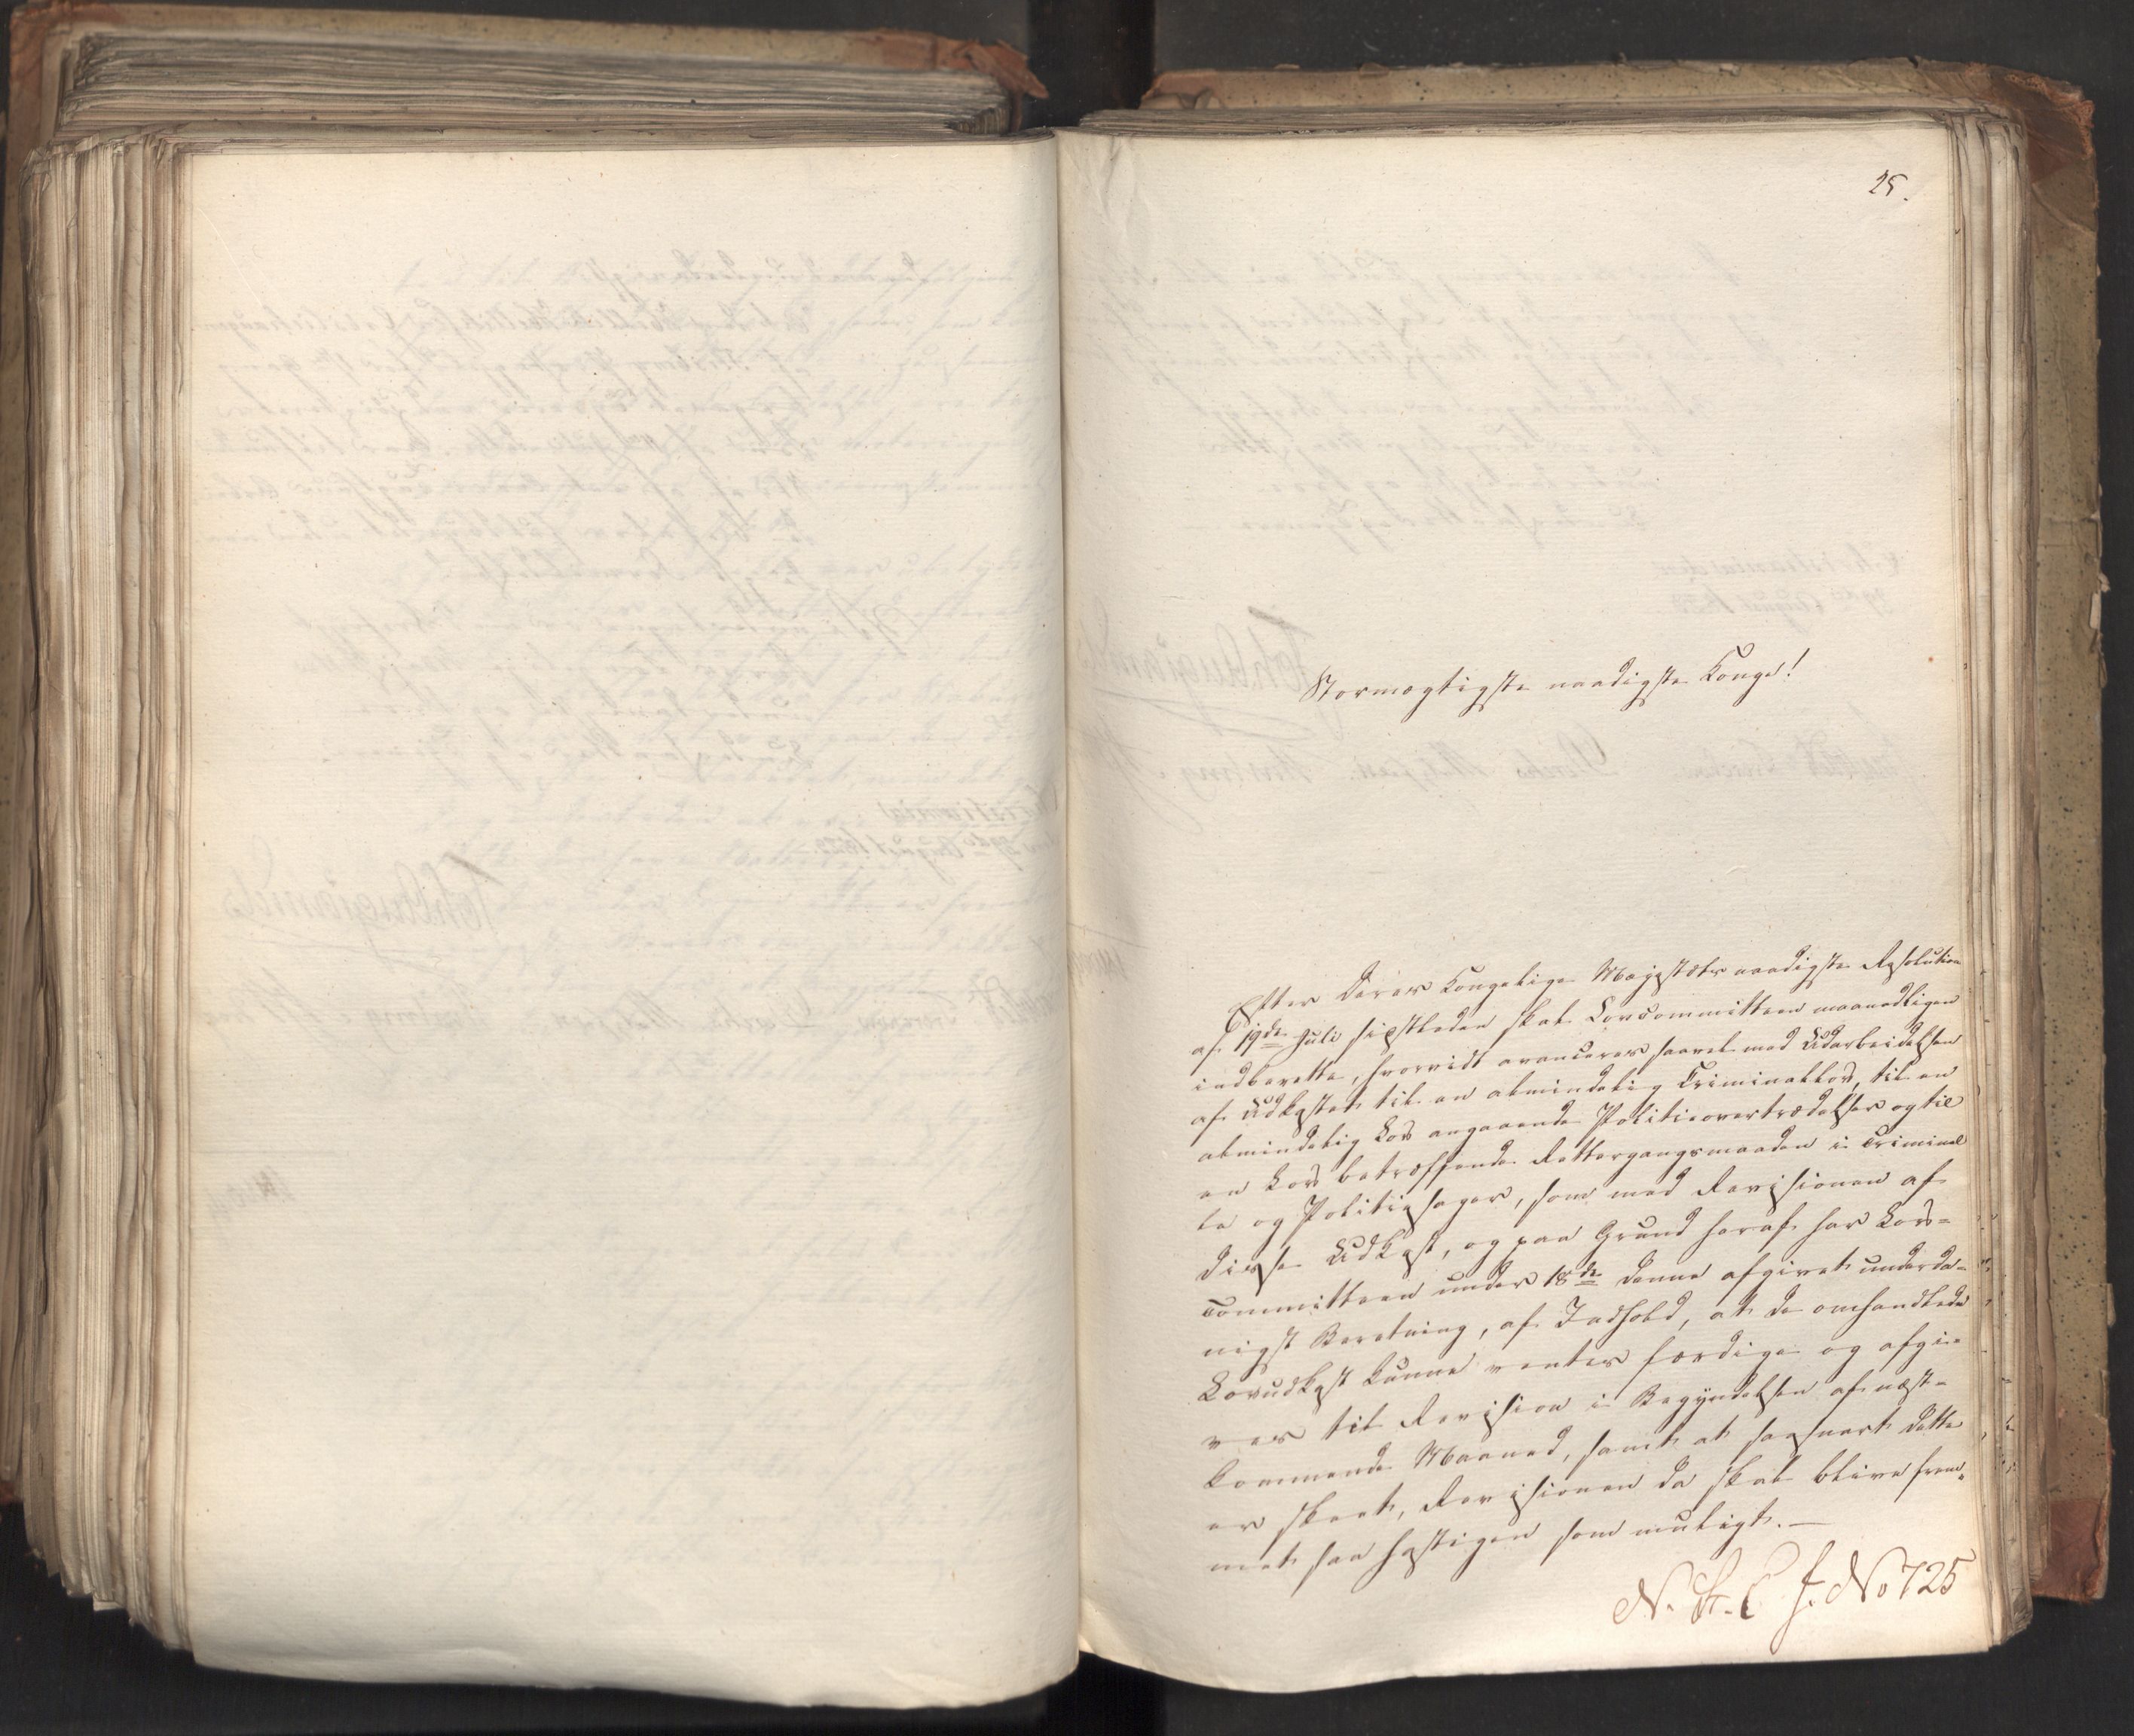 25.
Stormægtigste naadigste Konge!
Efter Deres Kongelige Majestæts naadigste Resolution
af 19de Juli sidstleden skal Lovcommitteen maanedligen
indberette, hvorvidt avanceres saavel med Udarbeidelsen
af Udkastet til en almindelig Criminallov, til en
almindelig Lov angaaende Politieovertrædelser og til
en Lov betræffende Rettergangsmaaden i Criminel
le og Politiesager, som med Revisionen af
disse Udkast, og paa Grund heraf har Lov-
committeen under 18de dennes afgivet underda-
nigst Beretning, af Indhold, at de omhandlede
Lovudkast kunne ventes færdige og afgi-
ves til Revision i Begyndelsen af næst-
kommende Maaned, samt at saasnart dette
er skeet, Revisionen da skal blive frem-
met saa hastigen som muligt.—
N. St. C J. No 725